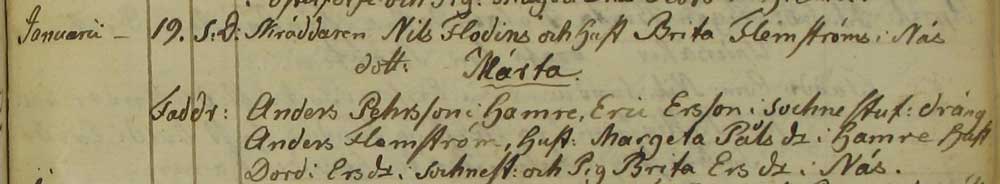 Januarii – 19. S:D: Skräddaren Nils Flodins och Hust Brita Flemströms i Näs
dott: Märta.
Faddr: Anders Pehrsson i Hamre, Eric Ersson i Sochnestuf: dräng
Anders Flemström, Hust: Margeta Påls dr i Hamre Hust
Dord: Ers dr i Sochnest: och Pig Brita Ers dr i Näs.